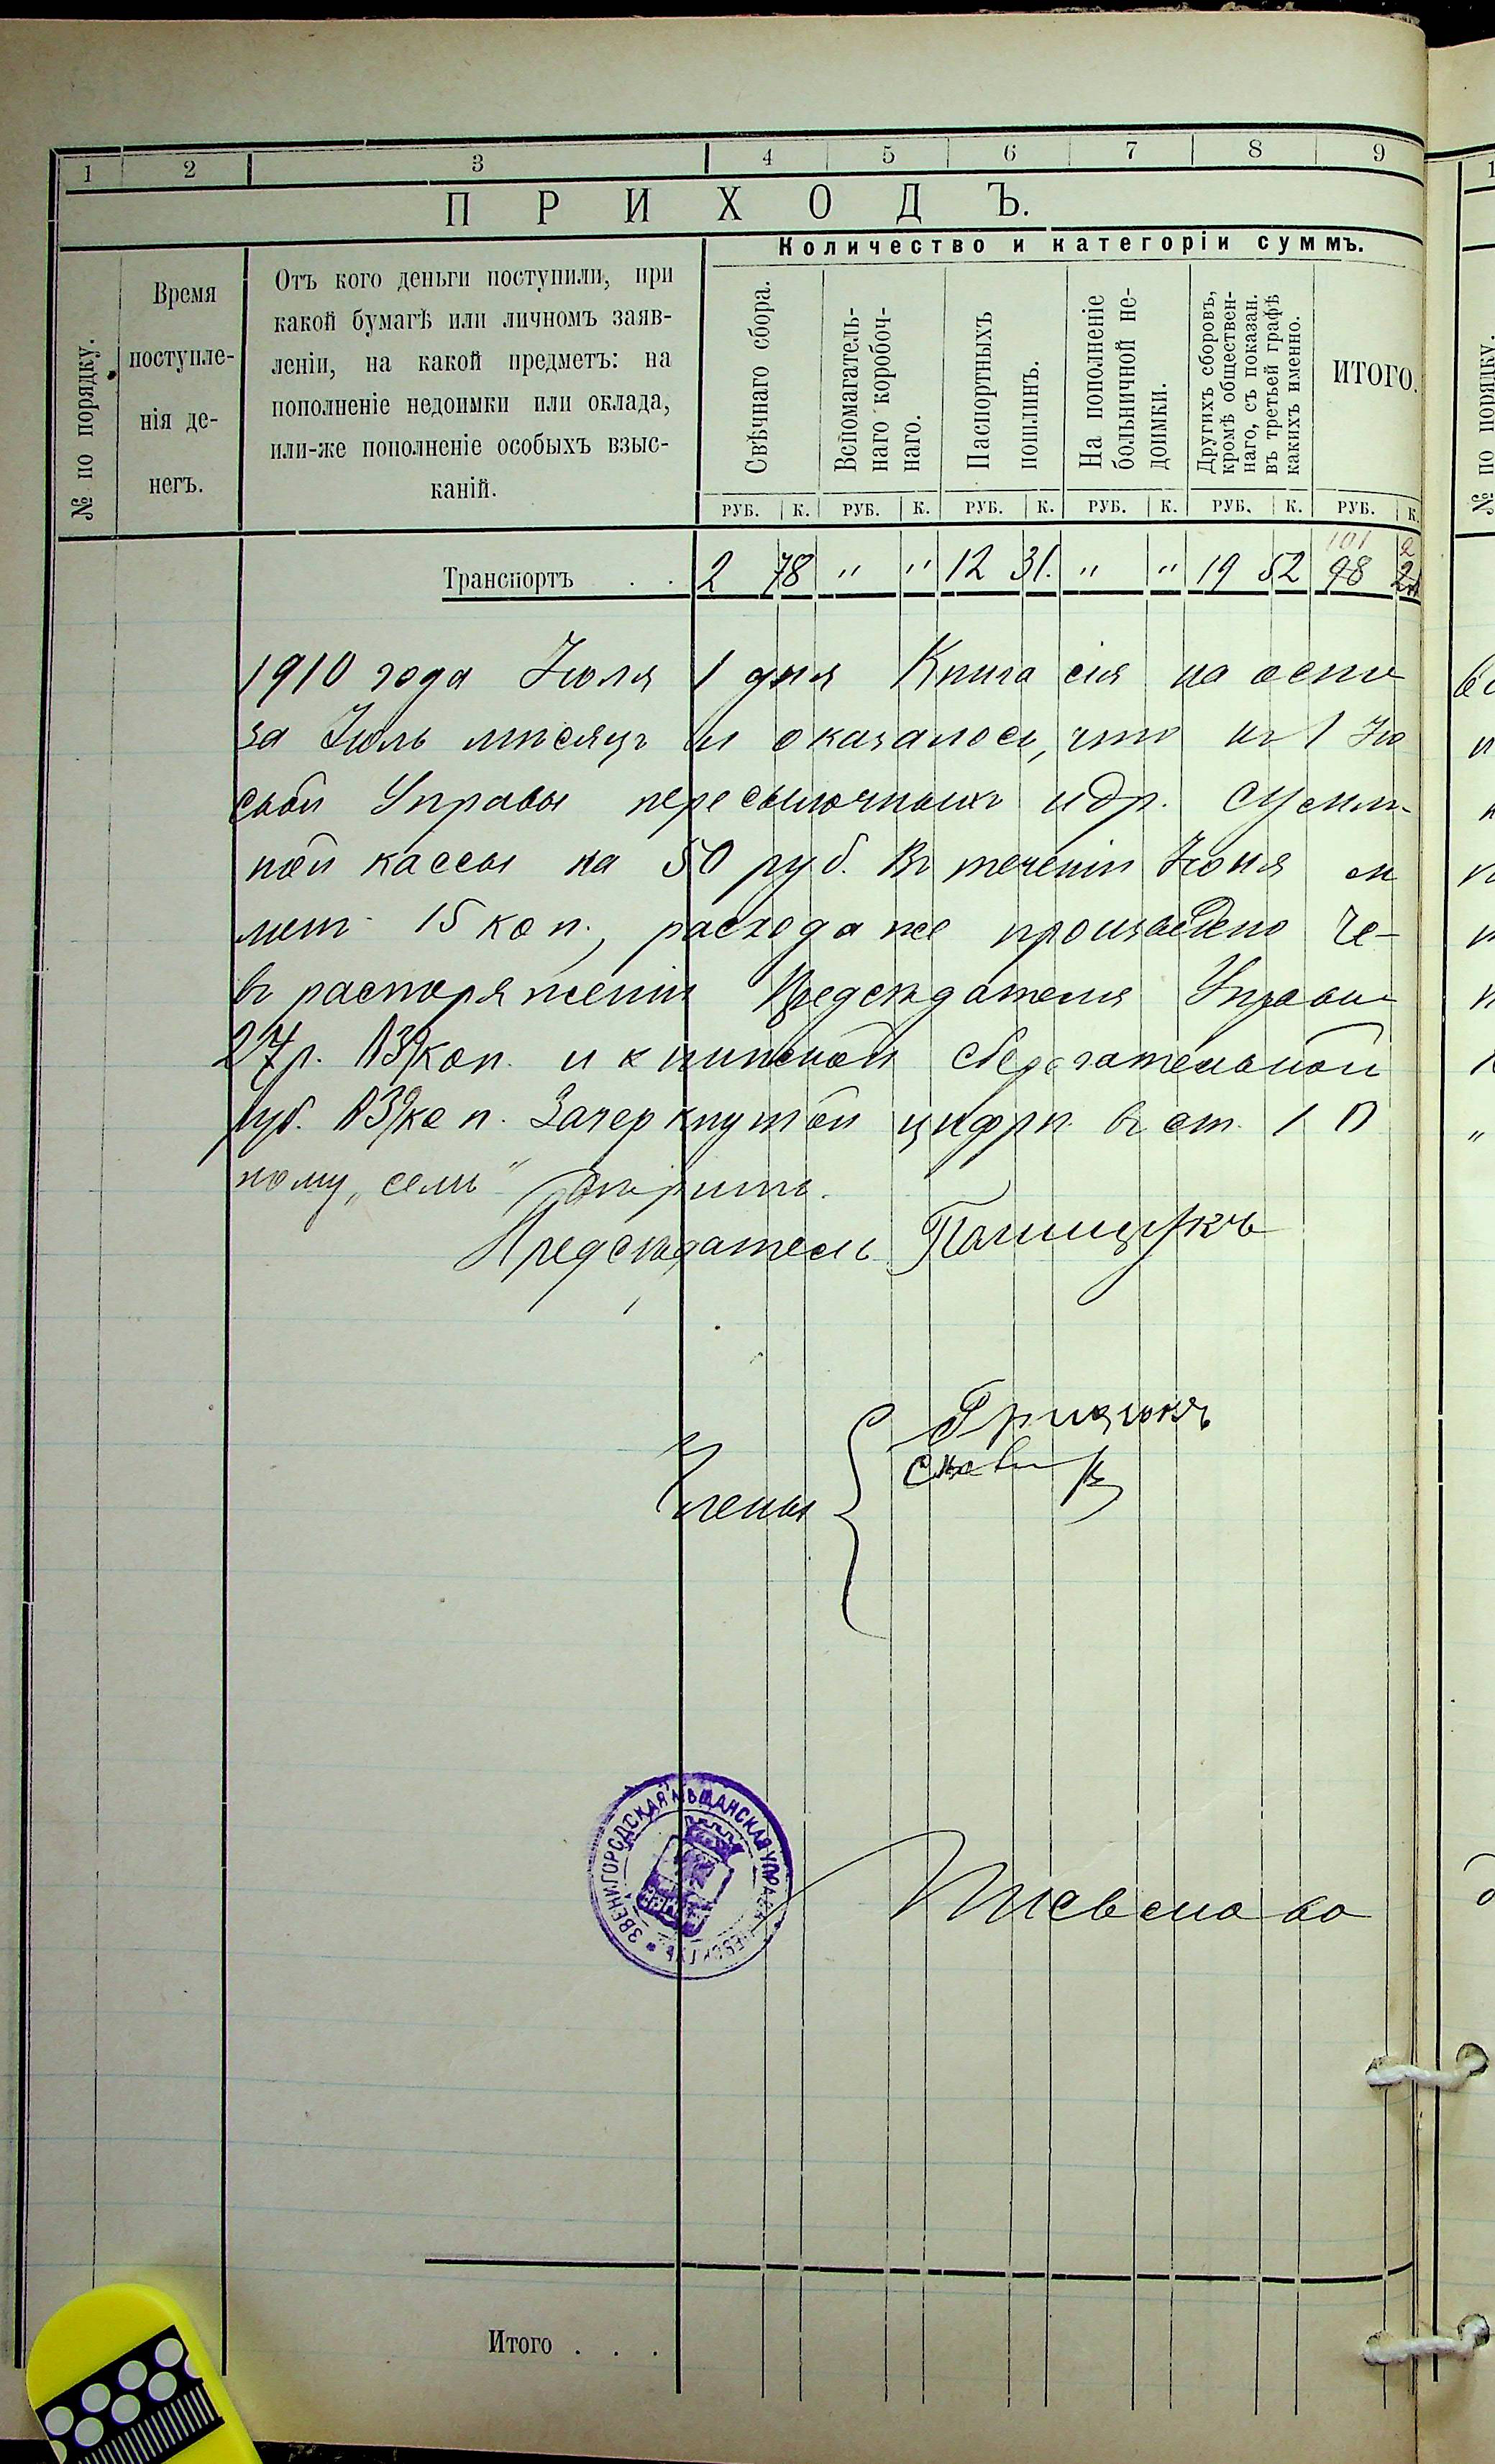 1 2 3 4 5 6 7 8 9
ПРИХОДЪ.
Количество и категоріи суммъ.
№ по порядку.
Время
поступле-
нія де-
негъ.
Отъ кого деньги поступили, при
какой бумагѣ или личномъ заяв-
леніи, на какой предметъ: на
пополненіе недоимки или оклада,
или-же пополненіе особыхъ взыс-
каній.
Свѣчнаго сбора.
Вспомагатель-
наго коробоч-
наго.
Паспортныхъ
пошлинъ.
На пополненіе
больничной не-
доимки.
Другихъ сборовъ,
кромѣ обществен-
наго, съ показан.
въ третьей графѣ
какихъ именно.
ИТОГО.
РУБ. К. РУБ. К. РУБ. К. РУБ. К. РУБ. К. РУБ. К.
101 2
Транспортъ . . 2 78 " " 12 31. " " 19 52 98
1910 года Іюля 1 дня Книга сія на осно
за Іюль мѣсяцъ и оказалось, что къ 1 Ію
ской Управы пересылочныхъ и др. сумм
ной кассы на 50 руб. Въ теченіи Іюня м
15 коп., расхода же произведено че-
въ распоряженіи Предсѣдателя Управы
27р. коп. и книжкой сберегательной
руб. коп. Зачеркнутой цифрѣ въ ст. 1 П
ному "семь" вѣрить.
Предсѣдатель
Члены
Грицюкъ
ЗВЕНИГОРОДСКАЯ МѢЩАНСКАЯ УПРАВА
Итого . . .
№ по порядку.